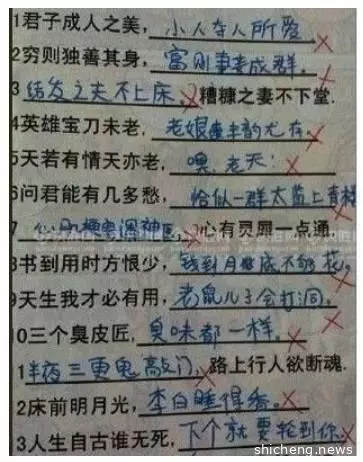 1君子成人之美,小人夺人所爱.
2穷则独善其身,富则妻妾成群.
3结发之夫不上床,糟糠之妻不下堂.
4英雄宝刀未老,老娘丰韵尤存.
5天若有情天亦老,噢,老天!
6问君能有几多愁,恰似一群太监上青楼
7 心有灵犀一点通.
8书到用时方恨少,钱到月底不够花.
9天生我才必有用,老鼠儿子会打洞.
0三个臭皮匠,臭味都一样.
1半夜三更鬼敲门,路上行人欲断魂.
2床前明月光,李白睡得香.
3人生自古谁无死,下个就要轮到你.
shicheng.news